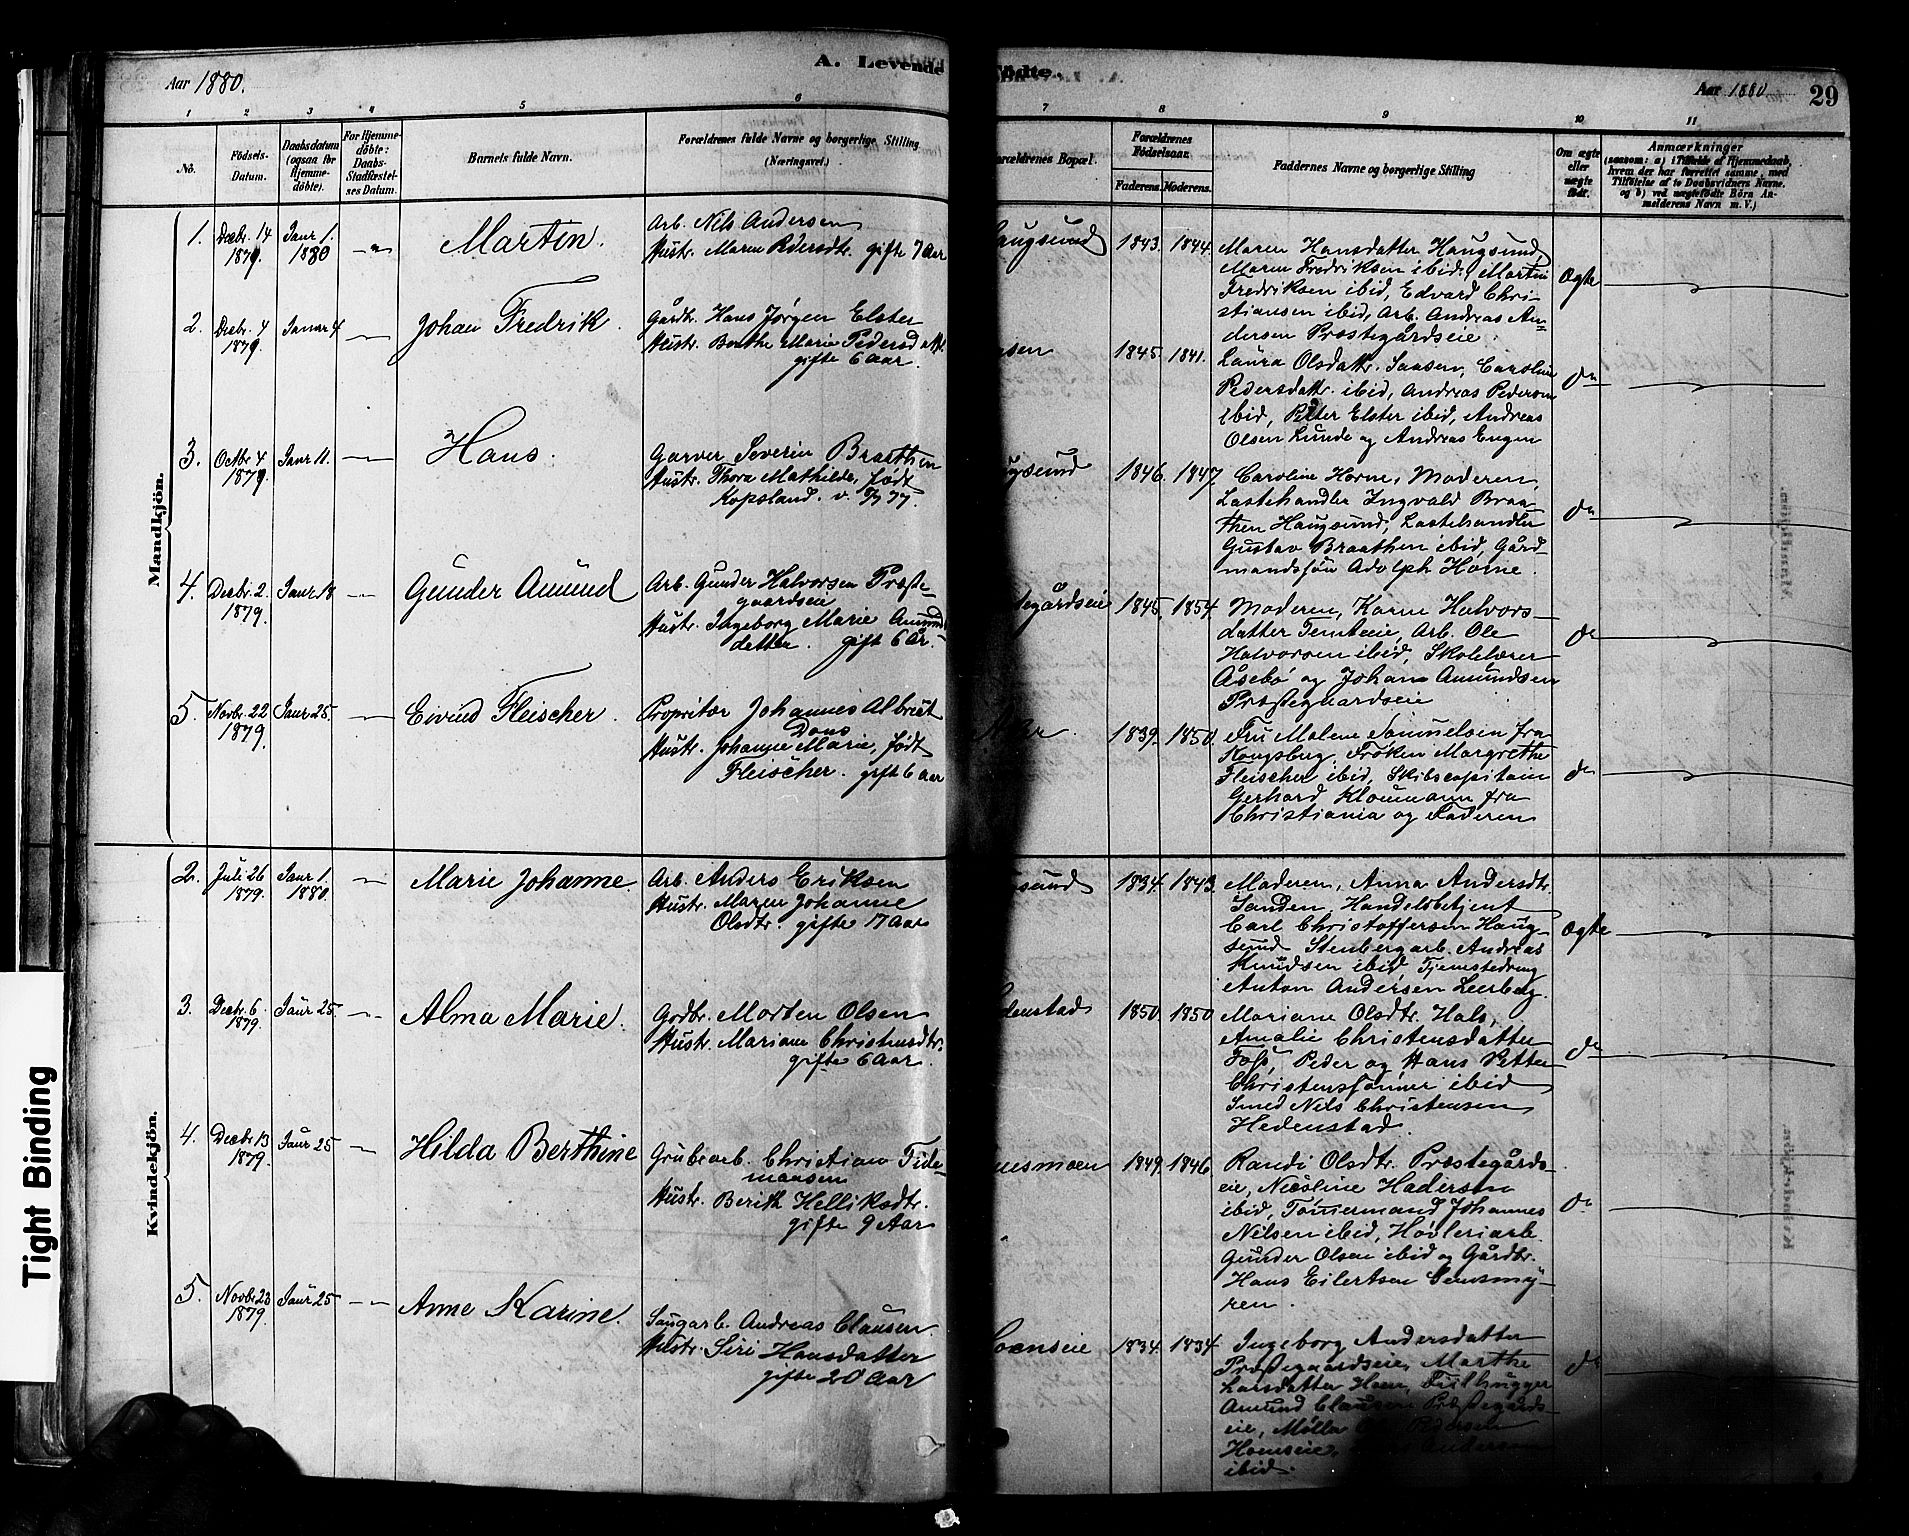 Aar 1880.
A. Levende
1 2 3 4 5 6
No.
Födsels-
Datum.
Daabsdatum
(ogsaa for
Hjemme-
döbte).
For Hjemme-
döbte:
Daabs-
Stadfæstel-
ses Datum.
Barnets fulde Navn.
Forældrenes fulde Navne og borgerlige Stilling
(Næringsvei).
Mandkjön.
1.
Decbr. 14
1879.
Janr. 1.
1880
Martin.
Arb. Nils Andersen
Hustr. Maren Pedersdtr. gifte 7 Aar
2.
Decbr. 4
1879.
Januar 4
Johan Fredrik.
Gårdbr. Hans Jørgen Elster
Hustr. Berthe Marie Pedersdatt.
gifte 6 Aar.
3.
Octbr. 4
1879.
Janr 11.
Hans.
Garver Severin Braathen
Hustr. Thora Mathilde, født
Kopsland. v.
4.
Decbr. 2.
1879.
Janr 18
Gunder Amund
Arb. Gunder Halvorsen Præste-
gaardseie
Hustr. Ingeborg Marie Amunds
datter. gift 6 År.
5.
Novbr. 22
1879.
Janr 25.
Eivind Fleischer.
Proprietær Johannes Albrict
Dons
Hustr. Johanne Marie, født
Fleischer. gift 6 aar
Kvindekjön.
2.
Juli 26
1879.
Janr 1.
1880.
Marie Johanne.
Arb. Anders Eriksen
Hustr. Maren Johanne
Olsdtr. gifte 17 Aar
3.
Decbr. 6.
1879.
Janr 25.
Alma Marie.
Gårdbr. Morten Olsen
Hustr. Mariane Christensdtr.
gifte 6 Aar.
4.
Decbr 13
1879.
Janr 25
Hilda Berthine
Grubearb. Christian Tide-
mansen
Hustr. Berith Helliksdtr.
gifte 9 Aar
5.
Novbr 23
1879.
Janr 25
Anne Karine.
Saugarb. Andreas Clausen.
Hustr. Siri Hansdatter
gifte 20 Aar
Tight Binding
Födte.
Aar 1880
29
7 8 9 10 11
Forældrenes Bopæl.
Forældrenes
Födselsaar.
Faderens. Moderens.
Faddernes Navne og borgerlige Stilling
Om ægte
eller
uægte
födt.
Anmærkninger
(saasom: a) i Tilfælde af Hjemmedaab,
hvem der har forrettet samme, med
Tilföielse af to Daabsvidners Navne.
og b) ved uægtefödte Börn An-
melderens Navn m. V.)
augsund
1843. 1844.
Maren Hansdatter Haugsund,
Maren Fredriksen ibid, Martin
Fredriksen ibid, Edvard Chri-
stiansen ibid, Arb. Andreas An-
dersen Præstegårdseie.
Ægte
1845. 1841.
Laura Olsdattr. Saasen, Caroline
Pedersdattr. ibid, Andreas Pedersen
ibid, Petter Elster ibid, Andreas
Olsen Lunde og Andreas Engen
do
ugsund
1846. 1847
Caroline Horne, Moderen,
Lastehandler Ingvald Braa-
then Haugsund, Lastehandler
Gustav Braathen ibid, Gård-
mandssøn Adolph Horne.
do
tegårdseie
1845. 1854.
Moderen, Karen Halvors-
datter Temteeie, Arb. Ole
Halvorsen ibid, Skolelærer
Åsebø og Johan Amundsen
Præstegaardseie
do
1839. 1850.
Fru Malene Samuelsen fra
Kongsberg, Frøken Margrethe
Fleischer ibid, Skibscapitain
Gerhard Kloumann fra
Christiania og Faderen
do
sund
1834. 1843.
Moderen, Anna Andersdtr.
Sanden, Handelsbetjent
Carl Christoffersen Haug-
sund Stenbergarb. Andreas
Knudsen ibid, Tjenestedreng
Anton Andersen Leerberg.
Ægte
denstad
1850. 1850
Mariane Olsdtr. Hals,
Amalie Christensdatter
Foss, Peder og Hans Petter
Christenssønner ibid
Smed Nils Christensen
Hedenstad.
do
usmoen
1849. 1846
Randi Olsdtr. Præstegårds-
eie, Nicoline Hadersen
ibid, Tømermand Johannes
Nilsen ibid, Høvleriarb.
Gunder Olsen ibid og Gårdbr.
Hans Eilertsen Gunsmy-
ren.
do
oenseie
1834. 1834.
Ingeborg Andersdatter
Præstegaardseie, Marthe
Larsdatter Hoen, Fiilhugger
Amund Clausen Præstegårds-
eie, Møller Pedersen
Hoenseie, Andersen
ibid.
do